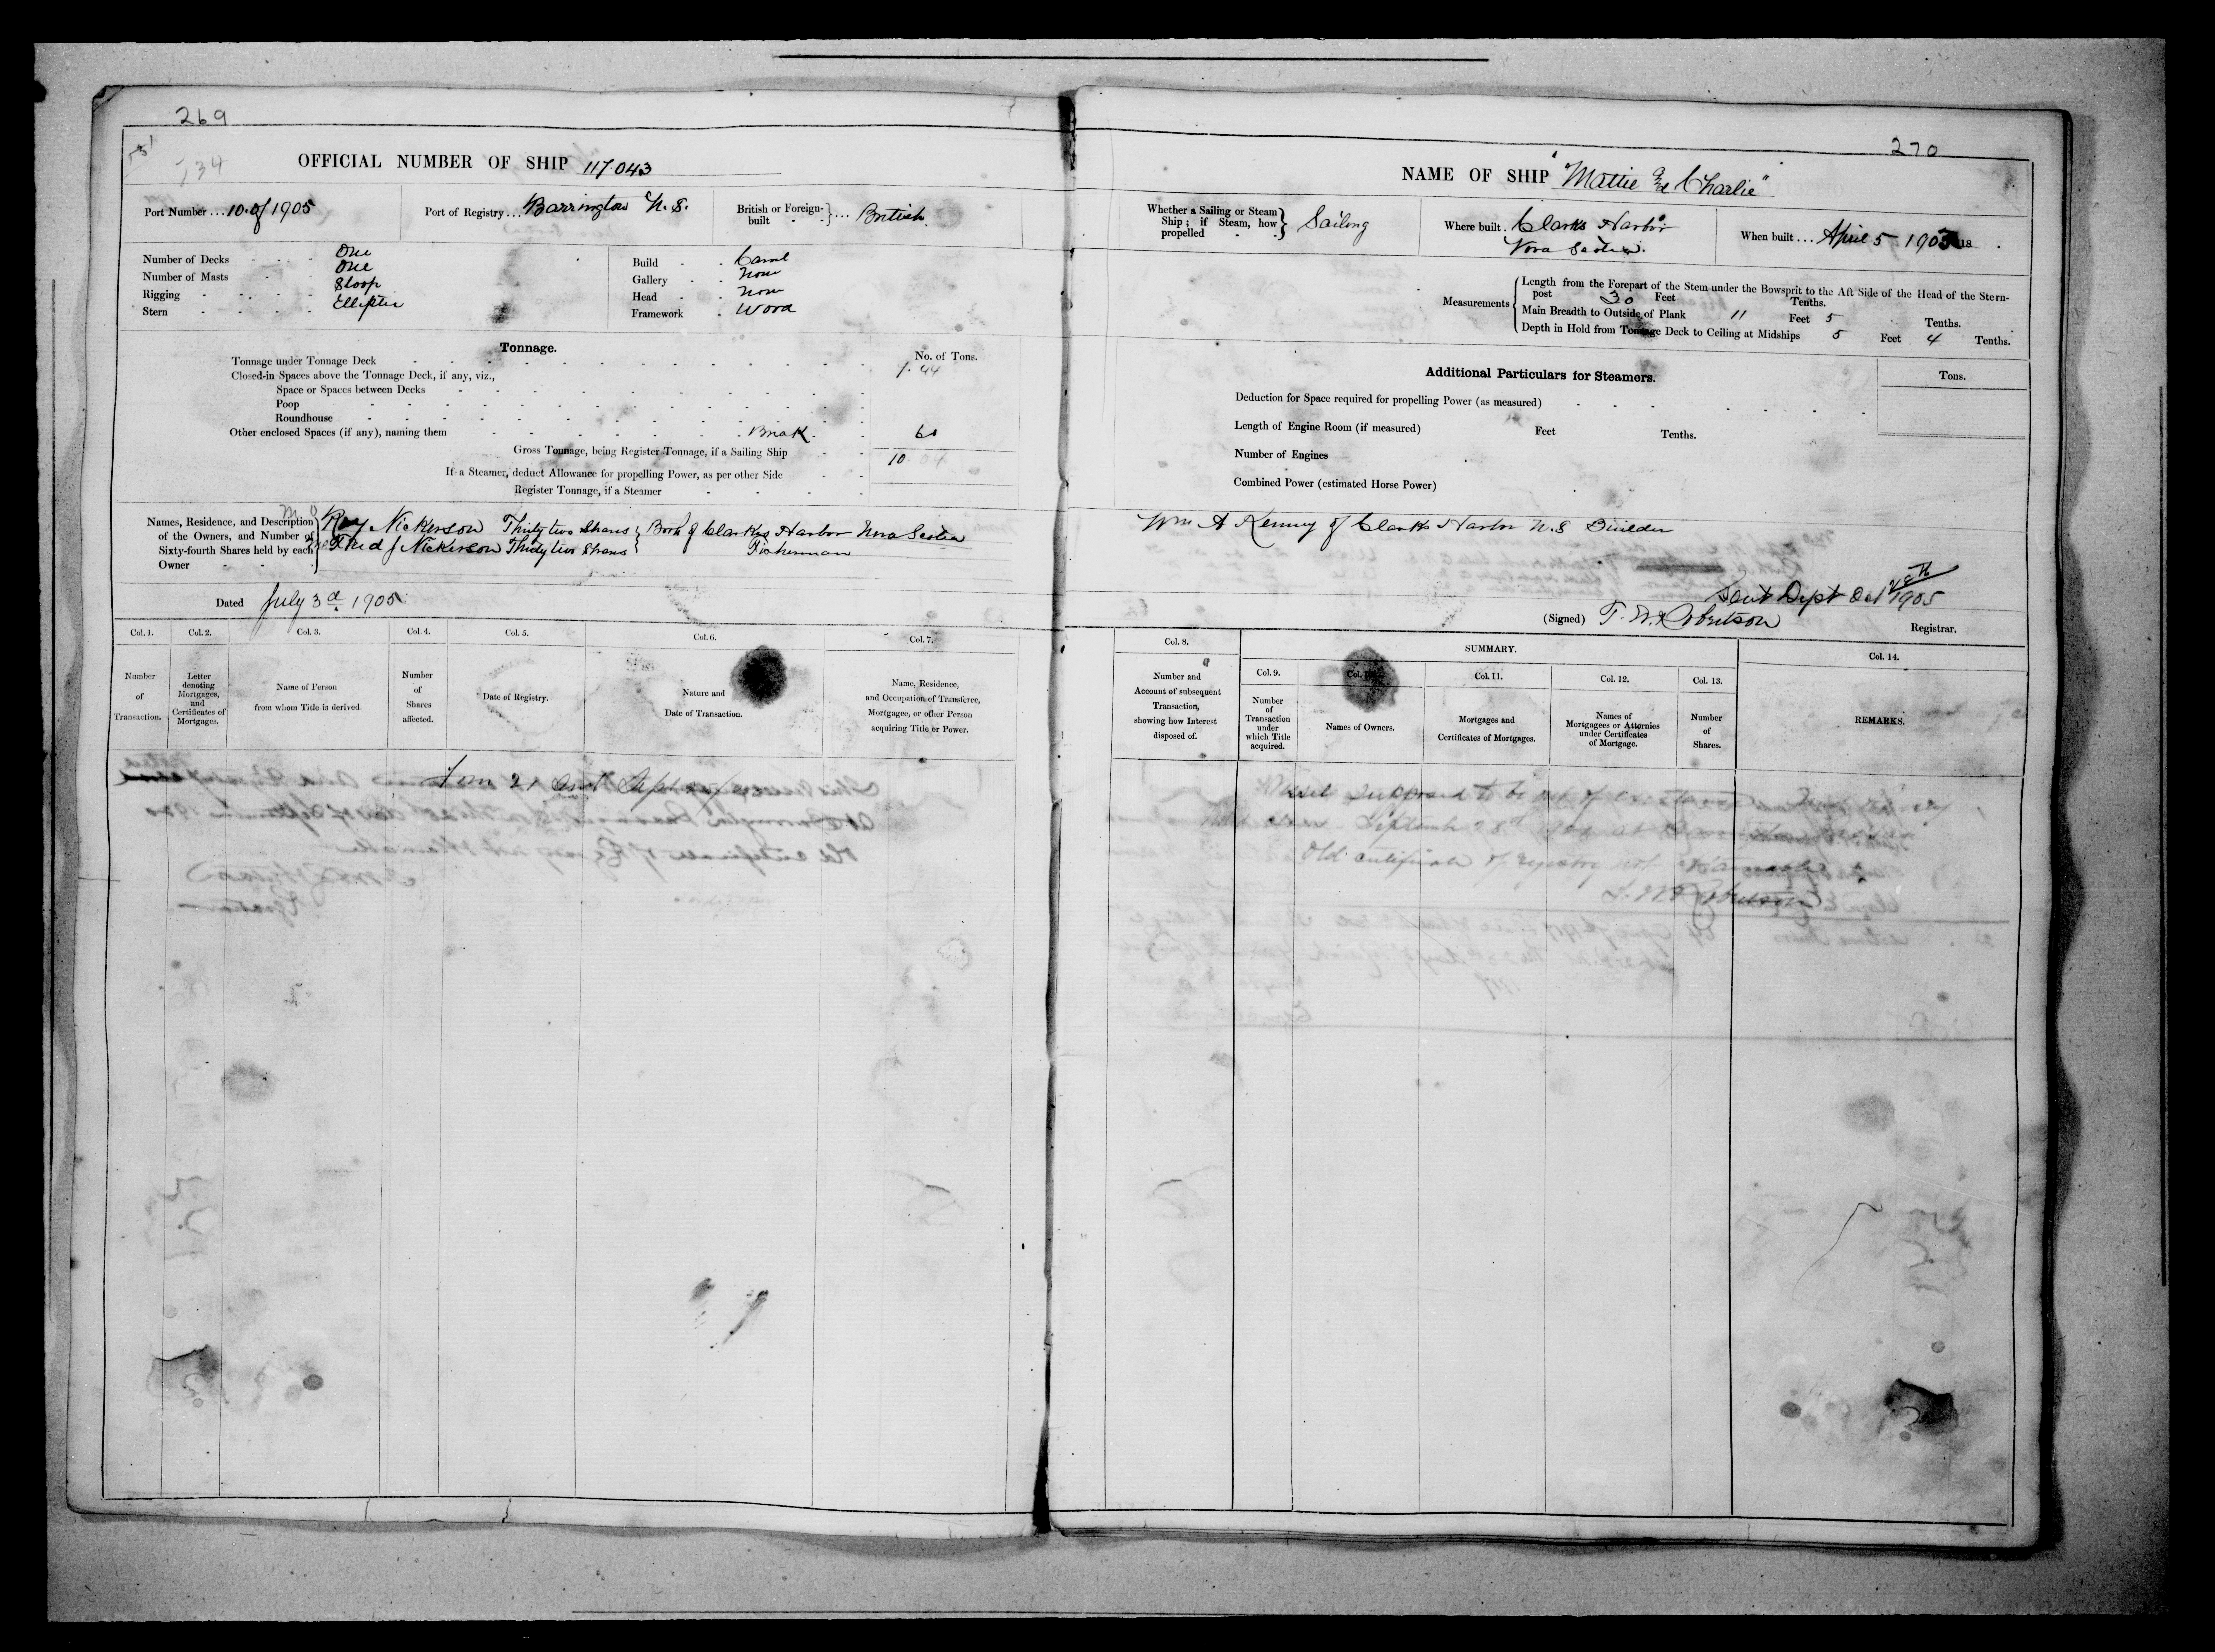 269
134
OFFICIAL NUMBER OF SHIP 117.043
Port Number ... 10 of 1905
Port of Registry ... Barrington N.S.
British or Foreign-built } ... British.
Number of Decks One
Number of Masts One
Rigging Sloop
Stern Elliptic
Build Carvel
Gallery None
Head None
Framework Wood
Tonnage.
No. of Tons.
Tonnage under Tonnage Deck 9.44
Closed-in Spaces above the Tonnage Deck, if any, viz.,
Space or Spaces between Decks
Poop
Roundhouse
Other enclosed Spaces (if any), naming them Break 60
Gross Tonnage, being Register Tonnage, if a Sailing Ship 10.04
If a Steamer, deduct Allowance for propelling Power, as per other Side
Register Tonnage, if a Steamer
Names, Residence, and Description of the Owners, and Number of Sixty-fourth Shares held by each Owner
Ray Nickerson Thirty two Shares } Both of Clarks Harbor Nova Scotia
Fred J Nickerson Thirty two Shares } Fisherman
Dated July 3d 1905
Col. 1.
Col. 2.
Col. 3.
Col. 4.
Col. 5.
Col. 6.
Col. 7.
Number of Transaction.
Letter denoting Mortgages, and Certificates of Mortgages.
Name of Person from whom Title is derived.
Number of Shares affected.
Date of Registry.
Nature and Date of Transaction.
Name, Residence, and Occupation of Transferee, Mortgagee, or other Person acquiring Title or Power.
270
NAME OF SHIP "Mattie and Charlie"
Whether a Sailing or Steam Ship; if Steam, how propelled } Sailing
Where built. Clarks Harbor
Nova Scotia.
When built ... April 5 1905 18 .
Measurements
Length from the Forepart of the Stem under the Bowsprit to the Aft Side of the Head of the Stern-
post 30 Feet Tenths.
Main Breadth to Outside of Plank 11 Feet 5 Tenths.
Depth in Hold from Tonnage Deck to Ceiling at Midships 5 Feet 4 Tenths.
Additional Particulars for Steamers.
Tons.
Deduction for Space required for propelling Power (as measured)
Length of Engine Room (if measured) Feet Tenths.
Number of Engines
Combined Power (estimated Horse Power)
Wm A Kenney of Clarks Harbor N.S Builder
Sent Dept Oct 28th 1905
(Signed) T. W. Robertson
Registrar.
Col. 8.
SUMMARY.
Col. 14.
Col. 9.
Col. 11.
Col. 12.
Col. 13.
Number and Account of subsequent Transaction, showing how Interest disposed of.
Number of Transaction under which Title acquired.
Names of Owners.
Mortgages and Certificates of Mortgages.
Names of Mortgagees or Attornies under Certificates of Mortgage.
Number of Shares.
REMARKS.
Vessel supposed to be out of existence
September 28th
Old certificate of registry not
T. W. Robertson